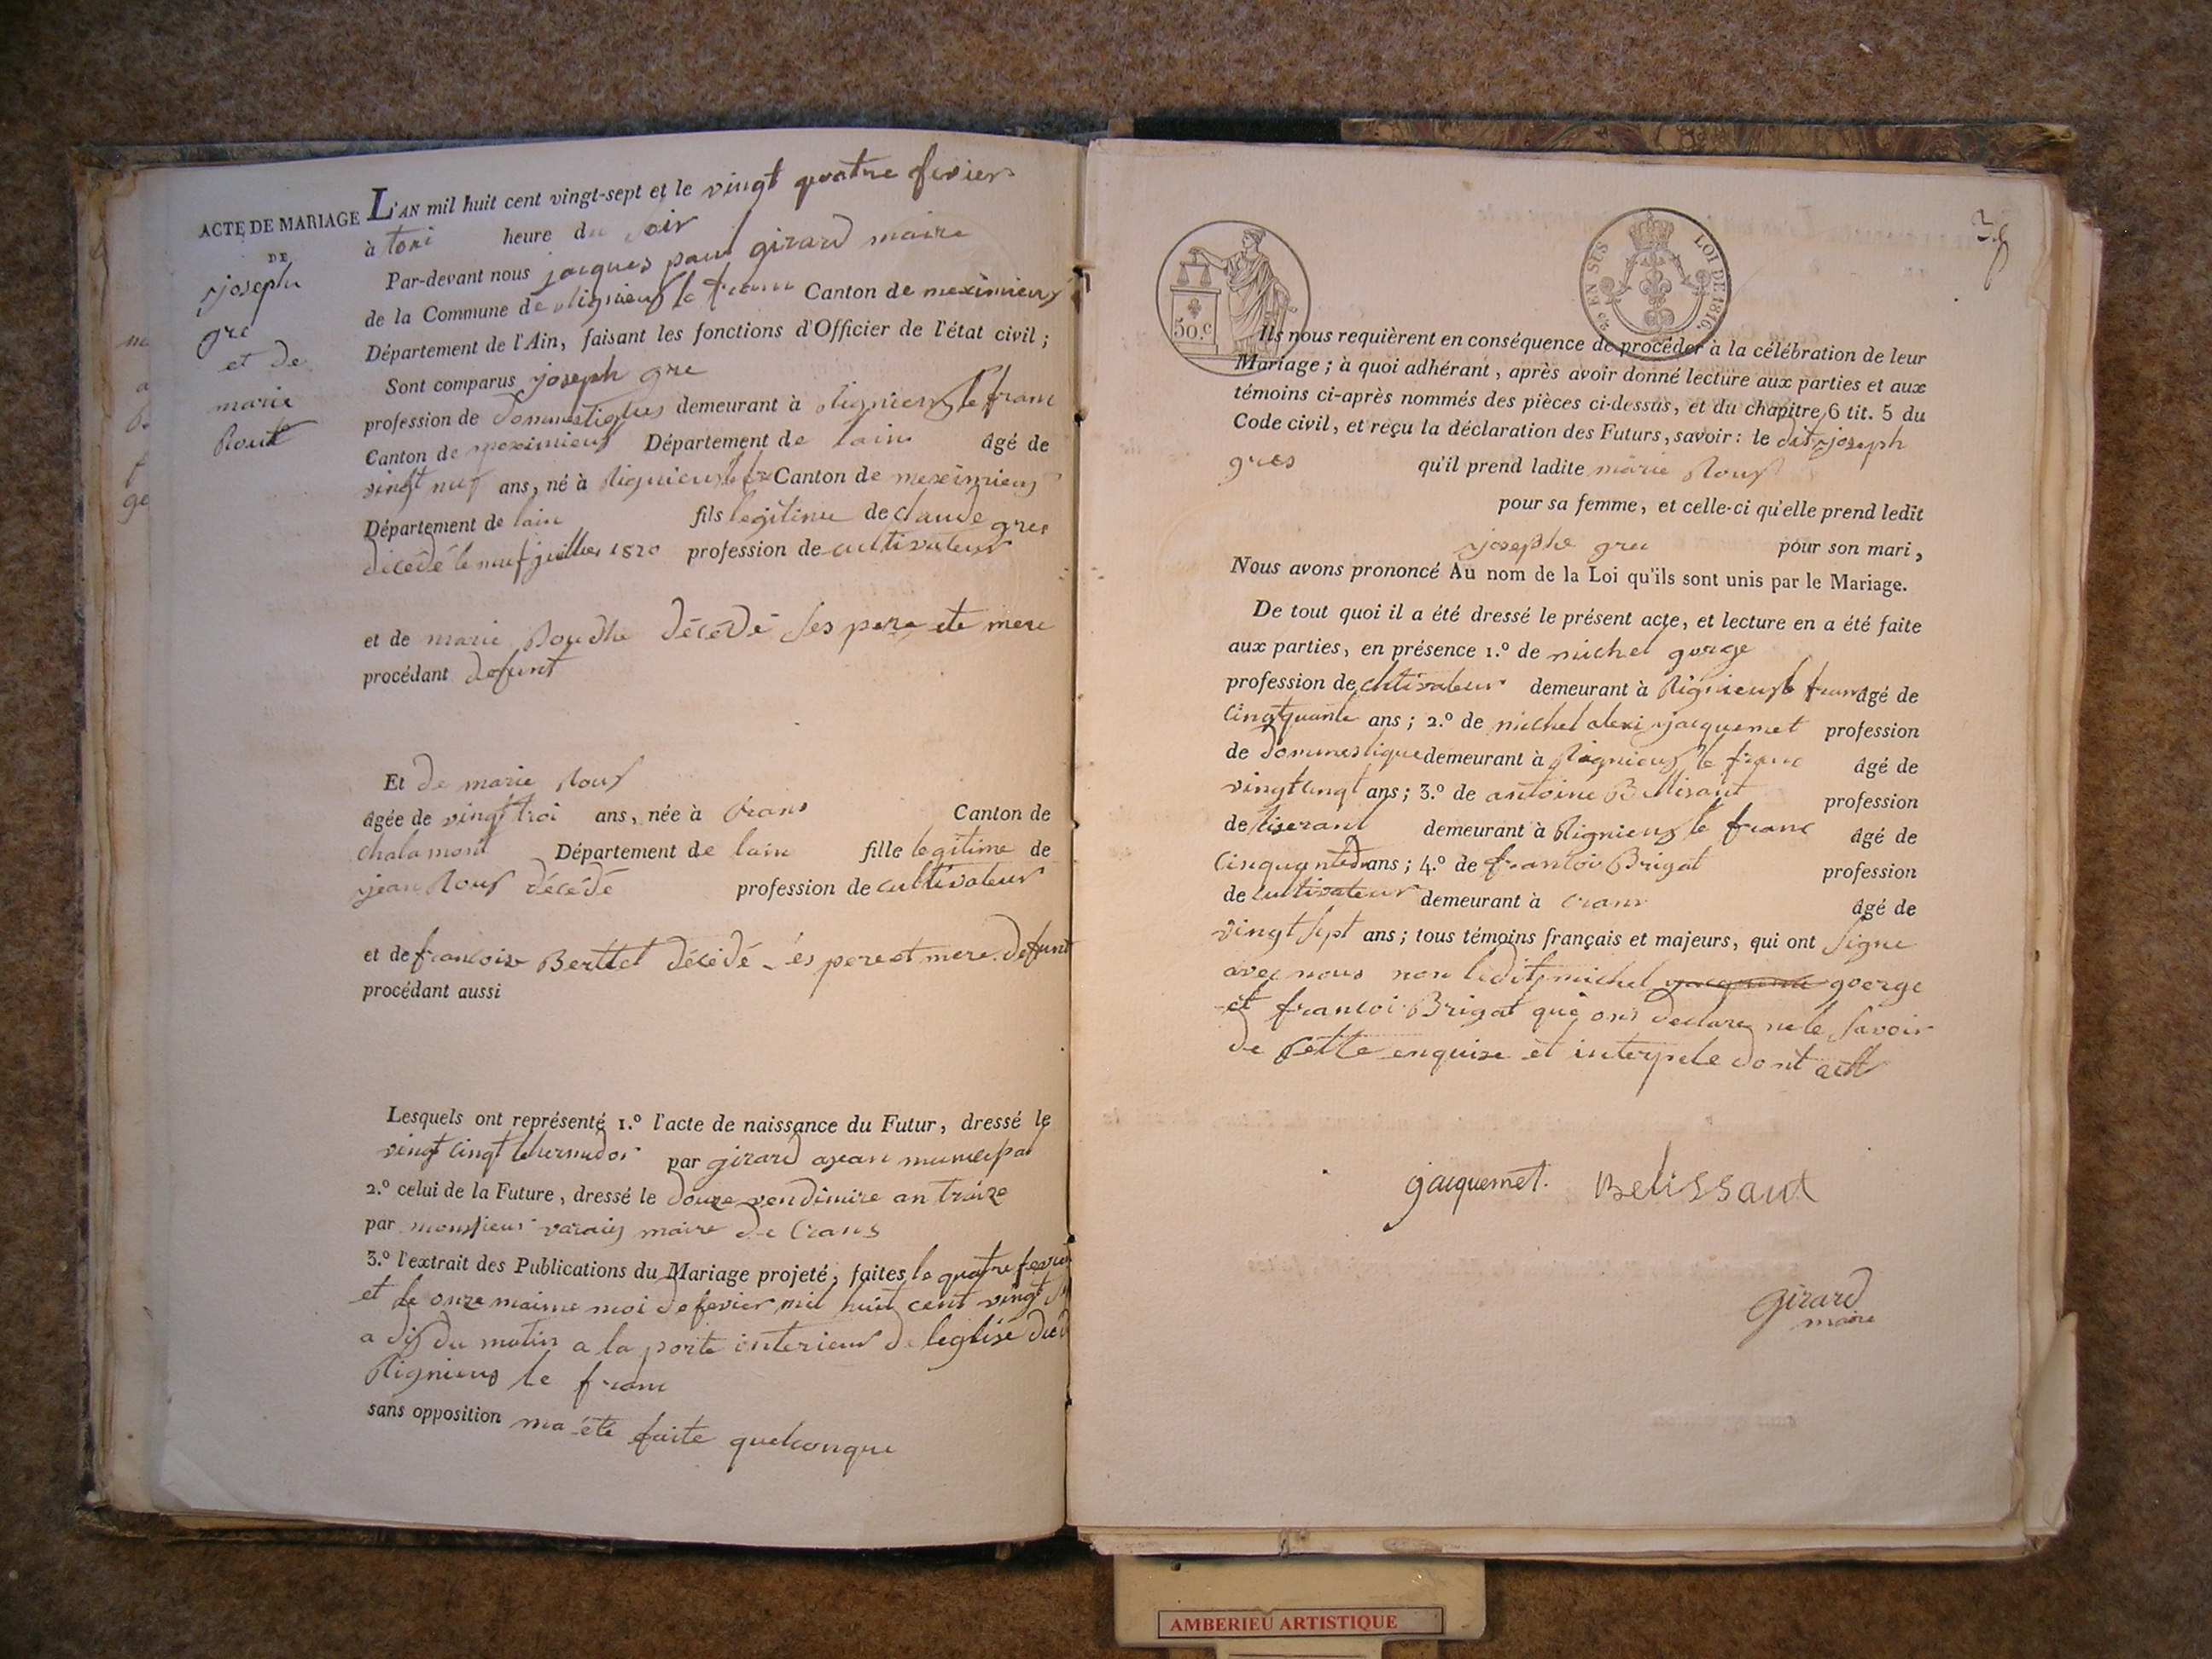 ACTE DE MARIAGE
DE
joseph
gre
et de
marie
Roux
L'AN mil huit cent vingt-sept et le vingt quatre fevier
à troi heure du soir
Par-devant nous jacques paul girard maire
de la Commune de Rignieux le franc Canton de meximieux
Département de l'Ain, faisant les fonctions d'Officier de l'état civil ;
Sont comparus joseph gre
profession de dommestiques demeurant à Rignieux le franc
Canton de meximieux Département de lain âgé de
vingt neuf ans, né à Rignieux le fr Canton de meximieux
Département de lain fils legitime de claude gres
décédé le neuf juillier 1820 profession de cultivateur
et de marie décédé ses pere et mere
procédant defunt
Et de marie Roux
âgée de vingt troi ans, née à Crans Canton de
chalamont Département de lain fille legitime de
jean Roux décédé profession de cultivateur
et de francoise Berttet décédé ses pere et mere defunt
procédant aussi
Lesquels ont représenté 1.º l'acte de naissance du Futur, dressé le
vingt cinqt thermidor par girard ajean municipal
2.º celui de la Future, dressé le douze vendimire an treize
par monsieur maire de Crans
3.º l'extrait des Publications du Mariage projeté, faites le quatre fevier
et le onze maime moi de fevier mil huit cent vingt
a dix du matin a la porte interieur de leglise dud
Rignieux le franc
sans opposition na été faite quelconque
38
50 c.
EN SUS
LOI DE 1816.
Ils nous requièrent en conséquence de procéder à la célébration de leur
Mariage ; à quoi adhérant, après avoir donné lecture aux parties et aux
témoins ci-après nommés des pièces ci-dessus, et du chapitre 6 tit. 5 du
Code civil, et reçu la déclaration des Futurs, savoir : le dit joseph
gres qu'il prend ladite marie Roux
pour sa femme, et celle-ci qu'elle prend ledit
josephe gre pour son mari,
Nous avons prononcé Au nom de la Loi qu'ils sont unis par le Mariage.
De tout quoi il a été dressé le présent acte, et lecture en a été faite
aux parties, en présence 1.º de michel gorge
profession de cltivateur demeurant à Rignieux le franc âgé de
Cinqtquante ans ; 2.º de michel alexi jacquemet profession
de dommestique demeurant à Rignieux le franc âgé de
vingt cinqt ans ; 3.º de antoine Bellisant profession
de tiserant demeurant à Rignieux le franc âgé de
Cinquante ans ; 4.º de francoi Brigat profession
de cultivateur demeurant à Crans âgé de
vingt sept ans ; tous témoins français et majeurs, qui ont signe
avec nous non ledit michel goerge
et francoi Brigat que ons declarez ne le savoir
de cette enquise et interpele dont act
jacquemet. Belissant
girard
maire
AMBERIEU ARTISTIQUE